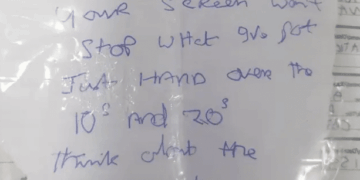 Your SCREEN Won't
STOP WHAt gvs got
Just HAND over the
10s AND 20s
think about the